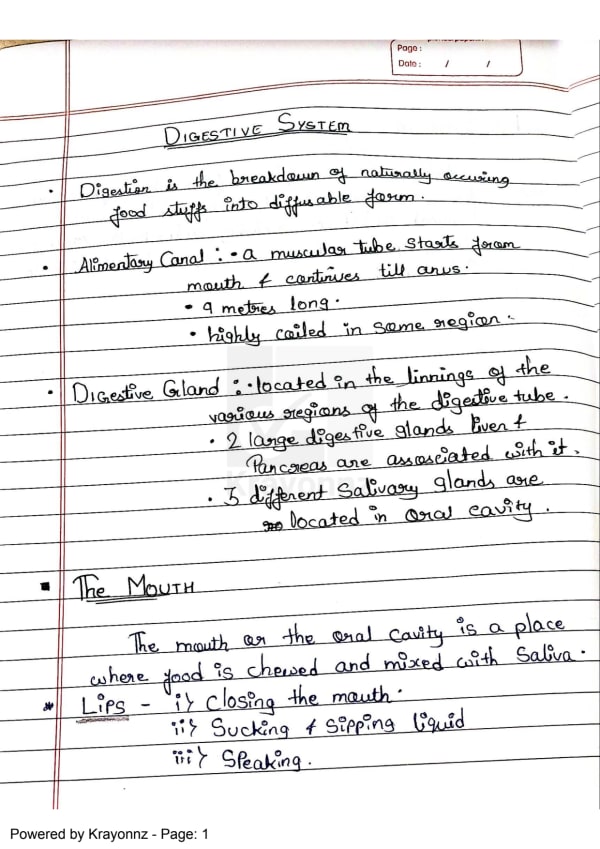 Page :
Date : / /
DIGESTIVE SYSTEM
• Digestion is the breakdown of naturally occuring
food stuffs into diffusable form.
• Alimentary Canal : • a muscular tube starts from
mouth & continues till anus.
• 9 metres long.
• highly coiled in some region.
• DIGESTIVE Gland : • located in the linnings of the
various regions of the digestive tube.
• 2 large digestive glands liver &
Pancreas are assosciated with it.
• 3 different Salivary glands are
located in oral cavity.
▪ The MOUTH
The mouth or the oral cavity is a place
where food is chewed and mixed with Saliva.
* Lips - i> Closing the mouth.
ii> Sucking & Sipping liquid
iii> Speaking.
Krayonnz
Powered by Krayonnz - Page: 1